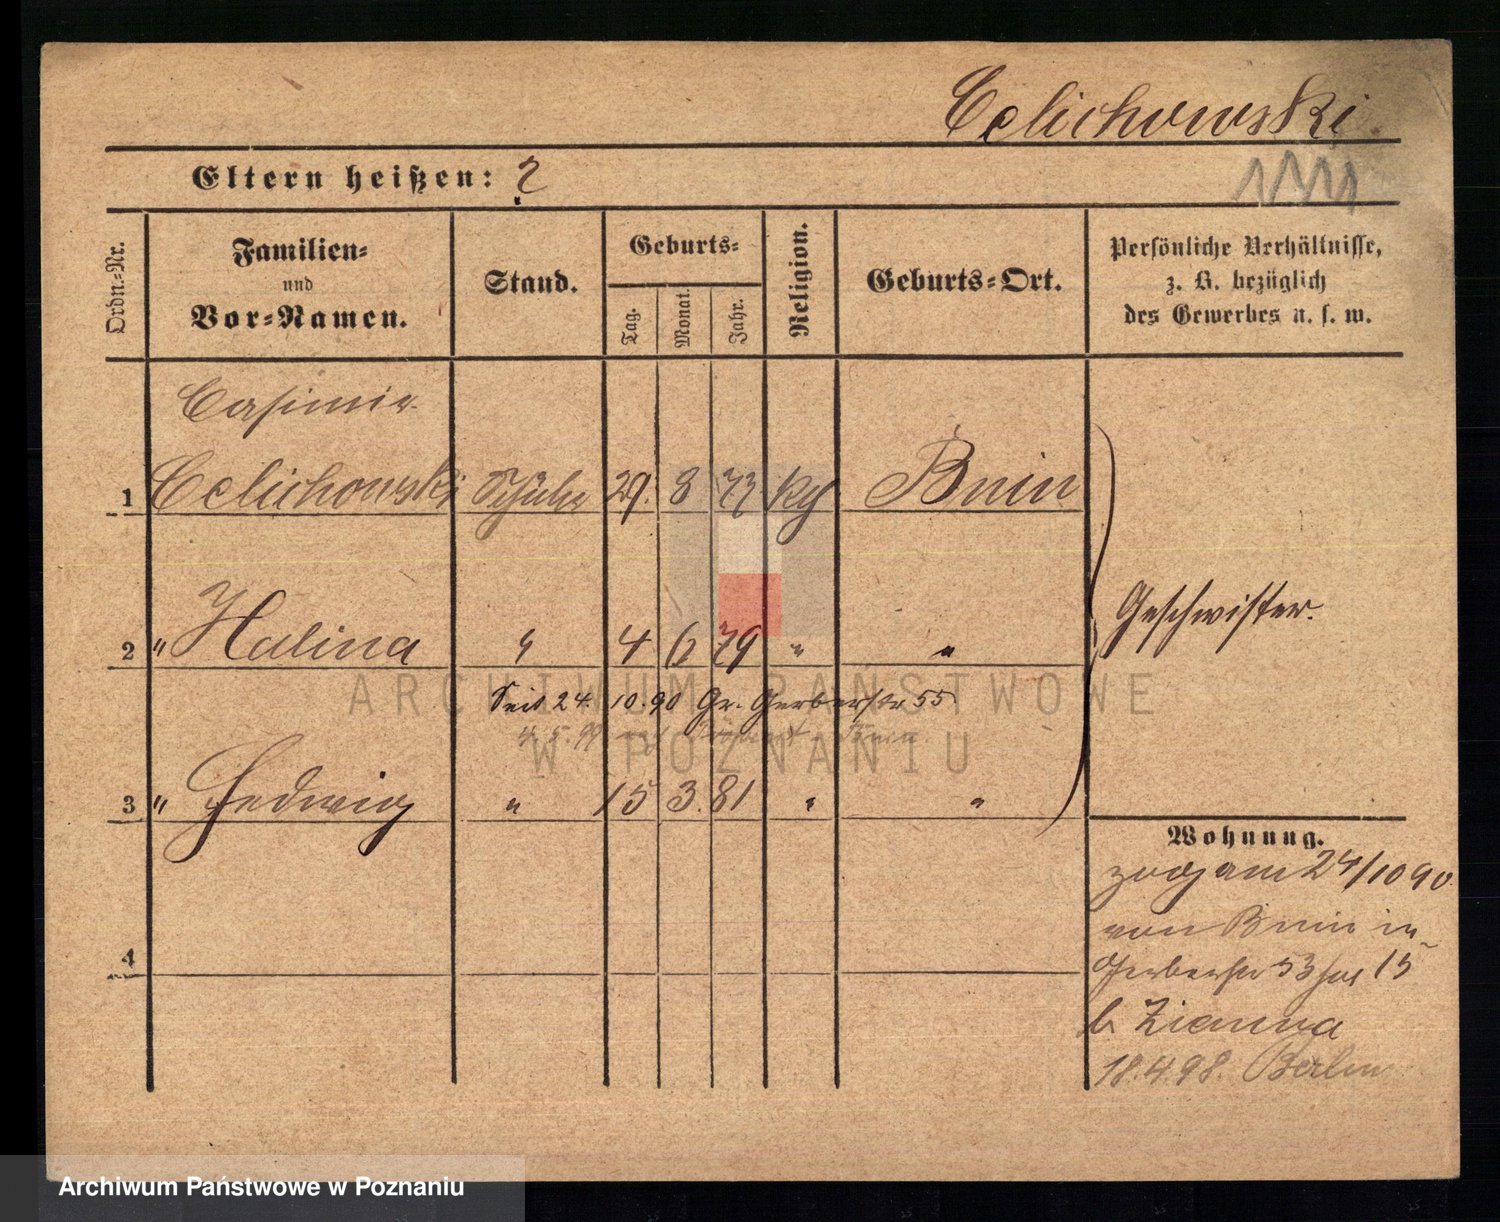 Celichowski.
1111
Eltern heißen: ?
Ordn.-Nr.
Familien-
und
Vor-Namen.
Stand.
Geburts-
Tag.
Monat.
Jahr.
Religion.
Geburts-Ort.
Persönliche Verhältnisse,
z. B. bezüglich
des Gewerbes u. s. w.
Casimir
1 Celichowski Schüler 29. 8 73 kg Bnin
Geschwister.
2 " Halina " 4 6 79 " "
Seit 24. 10. 90 Gr. Gerberstr 55
4. 5. 99
3 " Hedwig " 15 3. 81 " "
Wohnung.
zog am 24/10 90
von Bnin in
Gerberstr 53 15
b. Zianna
18.4.98. Berlin
4
ARCHIWUM PAŃSTWOWE
W POZNANIU
Archiwum Państwowe w Poznaniu